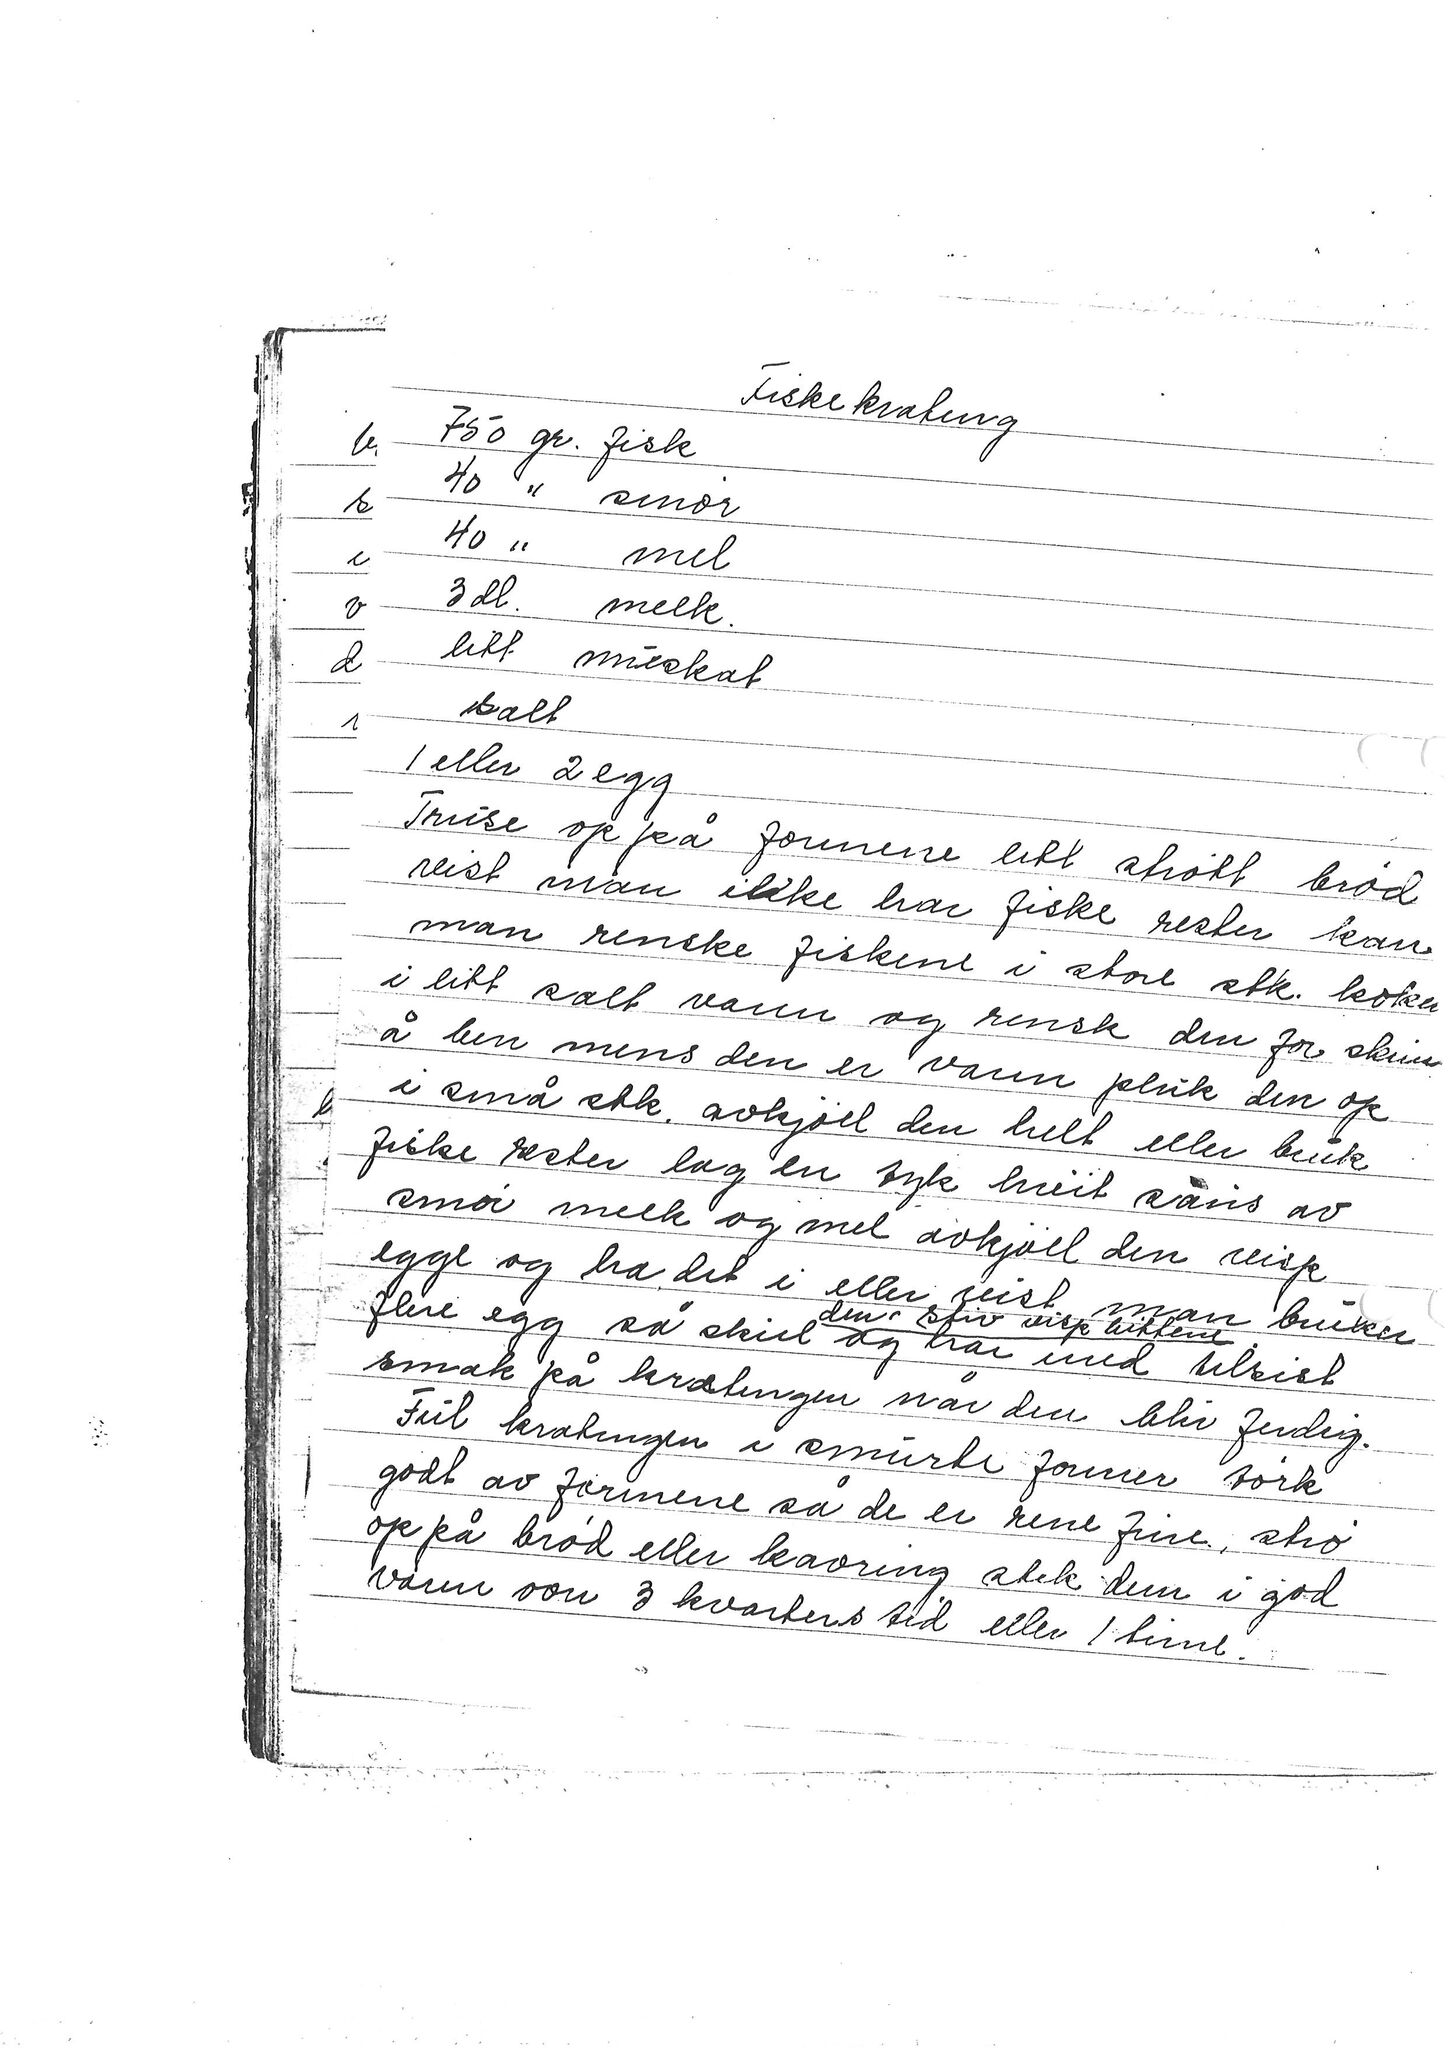 Fiskekrateng
750 gr. fisk
40 " smör
40 " mel
3 dl. melk.
litt muskat
salt
1 eller 2 egg
Truse op på formene litt strött bröd
vist man ikke har fiske rester kan
man renske fiskene i store stk. koken
i litt salt vann og rensk den for skinn
å ben mens den er varm pluk den op
i små stk. avkjöel den helt eller bruk
fiske rester lag en tyk hveit saus av
smör melk og mel avkjöel den visp
egge og ha det i eller vist man bruker
den. stiv visp hvittene
flere egg så skiel og har med tilsist
smak på kratengen når den blir ferdig.
Fül kratengen i smurte former törk
godt av formene så de er rene fine, strö
op på bröd eller kavring stek dem i god
varm ovn 3 kvarters tid eller 1 time.